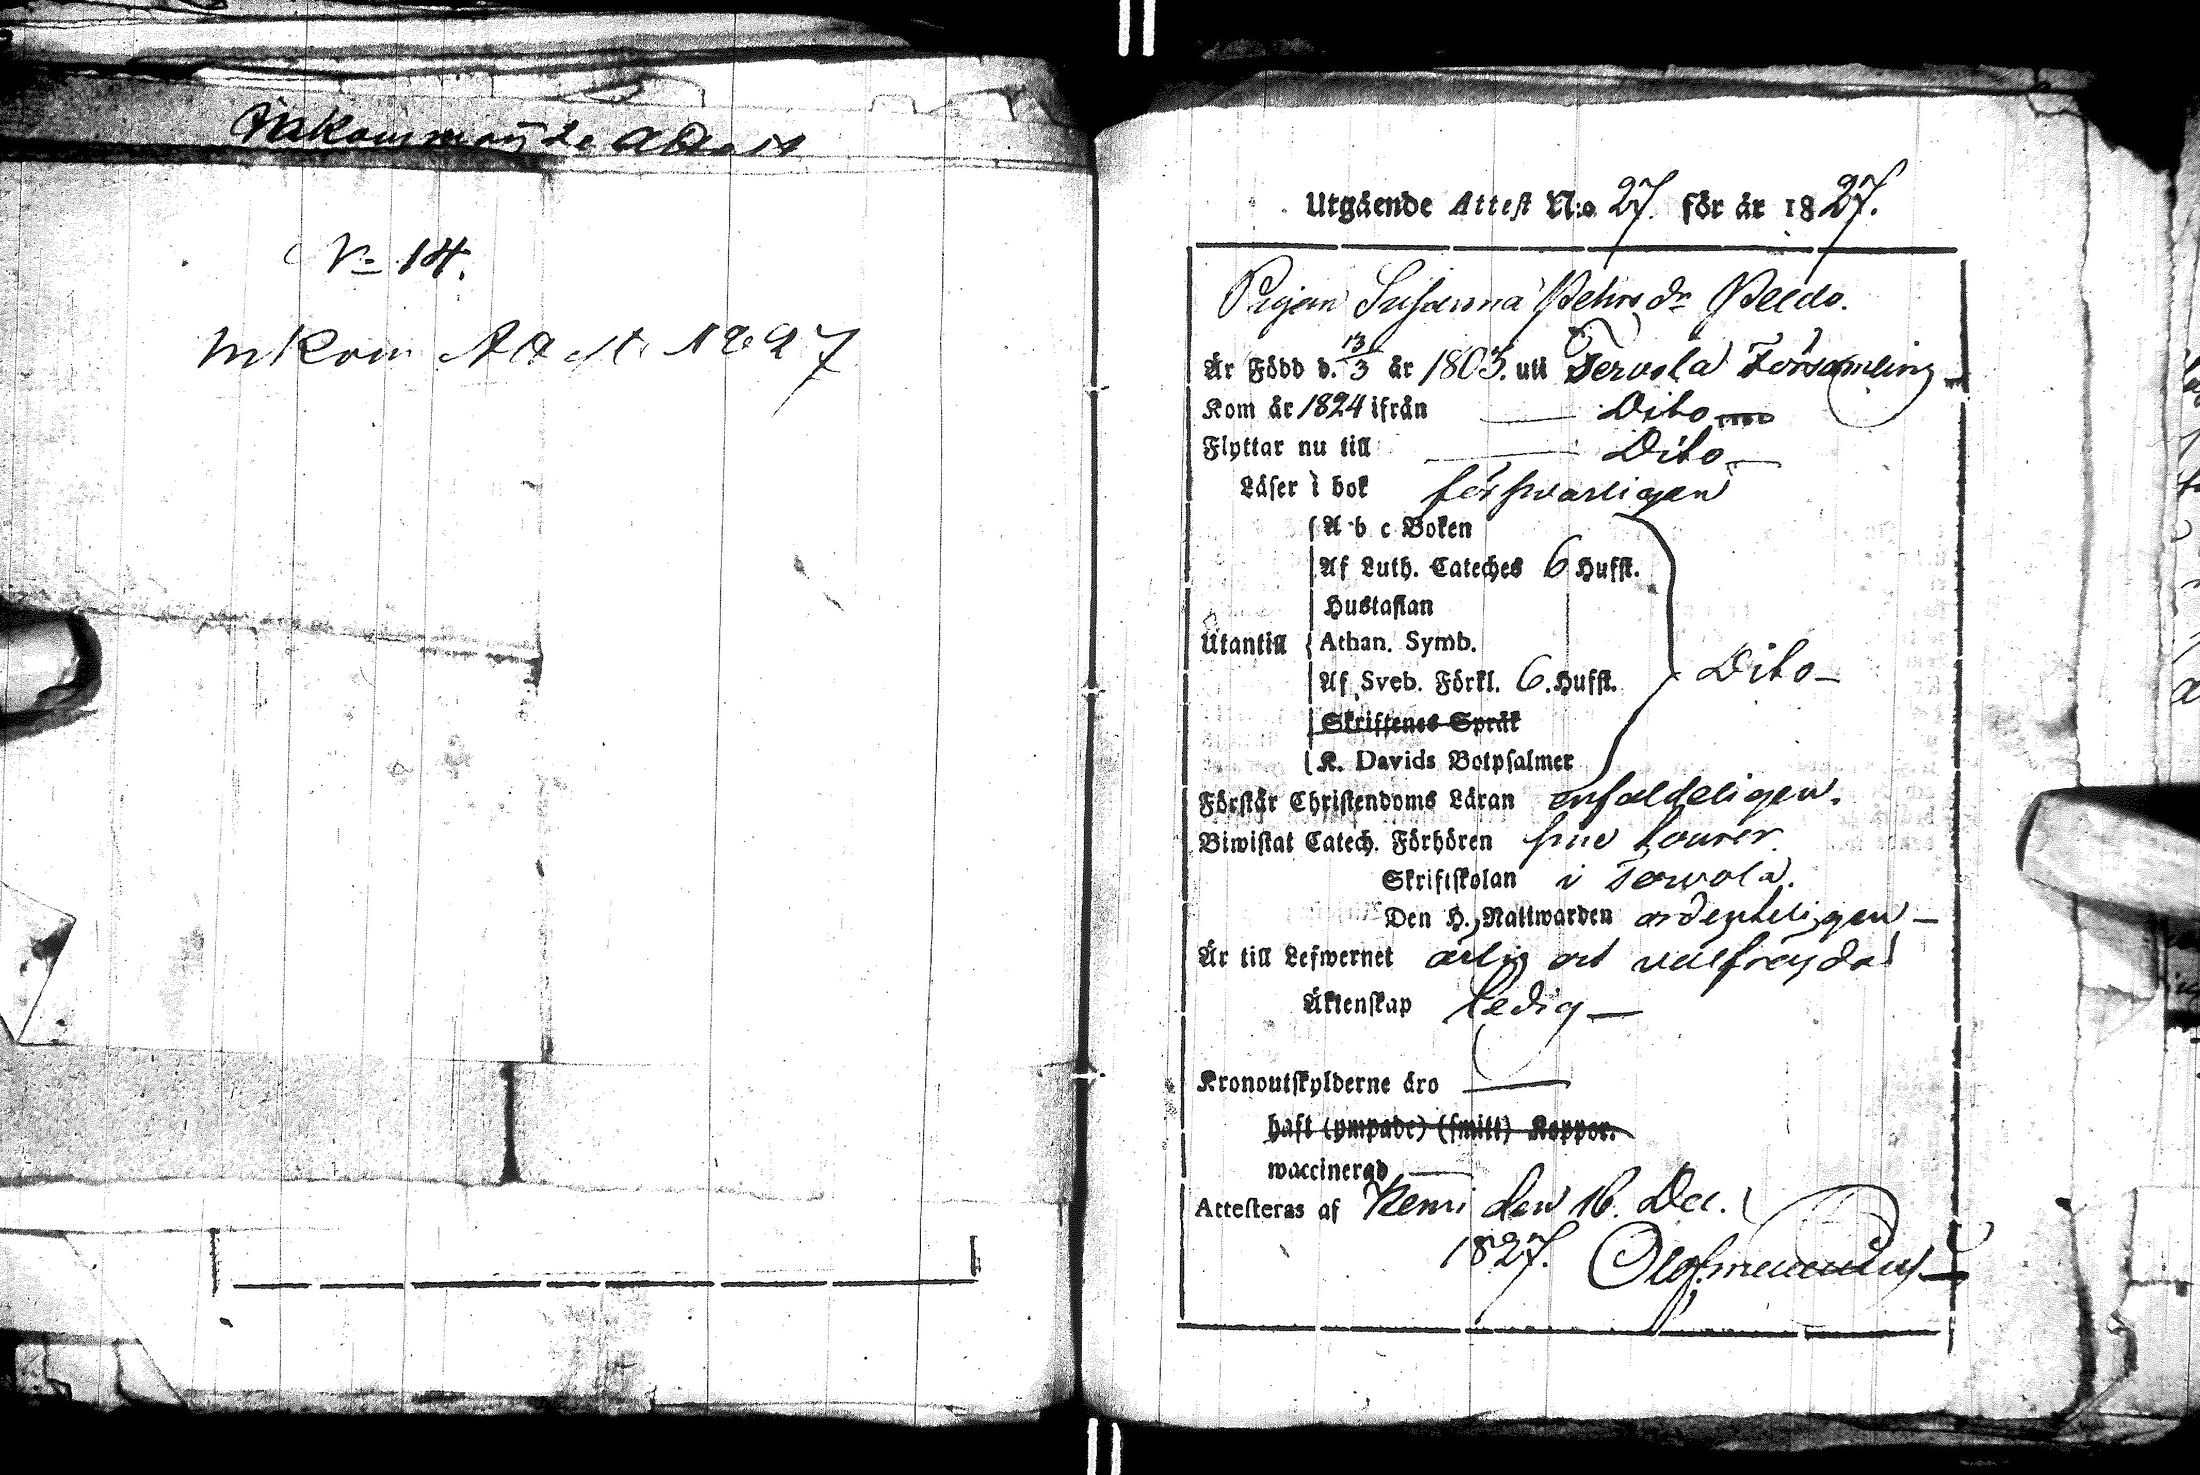 Inkommande Attest
No 14.
Inkom Attest 1827
Utgående Attest N:o 27. för år 1827.
Pigan Susanna Pehrsdr
Är Född d. 13/3 år 1803. uti Tervola Församling
Kom år 1824 ifrån — Dito
Flyttar nu till — Dito —
Läser i bok försvarligen
A b c Boken
Af Luth. Cateches 6 Hufst.
Hustaflan
Utantill Athan. Symb.
Af Sveb. Förkl. 6. Hufst. Dito —
Skriftenes Språk
K. Davids Botpsalmer
Förstår Christendoms Läran enfaldeligen.
Biwistat Catech. Förhören sine tourer.
Skriftskolan i Tervola.
Den H. Nattwarden ordenteligen —
Är till Lefwernet ärlig och välfrejdad
Äktenskap ledig —
Kronoutskylderne äro —
haft (ympade) (smitt) Koppor.
waccinerad —
Attesteras af Kemi den 16. Dec.
1827.